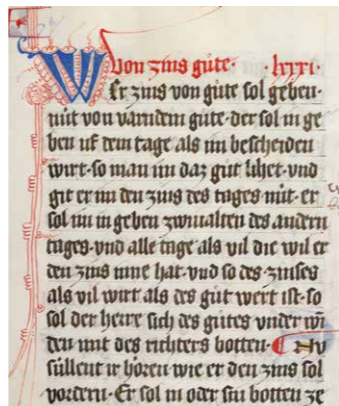 Von zins gůte · lxxxi ·
Wer zins von gůte sol geben ·
nút von varndem gůte · der sol in ge
ben uf dem tage als im bescheiden
wirt · so man im daz gůt lihet · vnd
git er im den zins des tages nút · er
sol im in geben zwiualten des andern
tages · vnd alle tage als vil die wil er
den zins inne hat · vnd so des zinses
als vil wirt als des gůt wert ist · so
sol der herre sich des gůtes vnder wī
den mit des richters botten · Nv
súllent ir hören wie er den zins sol
vordern · Er sol in oder sin botten ze